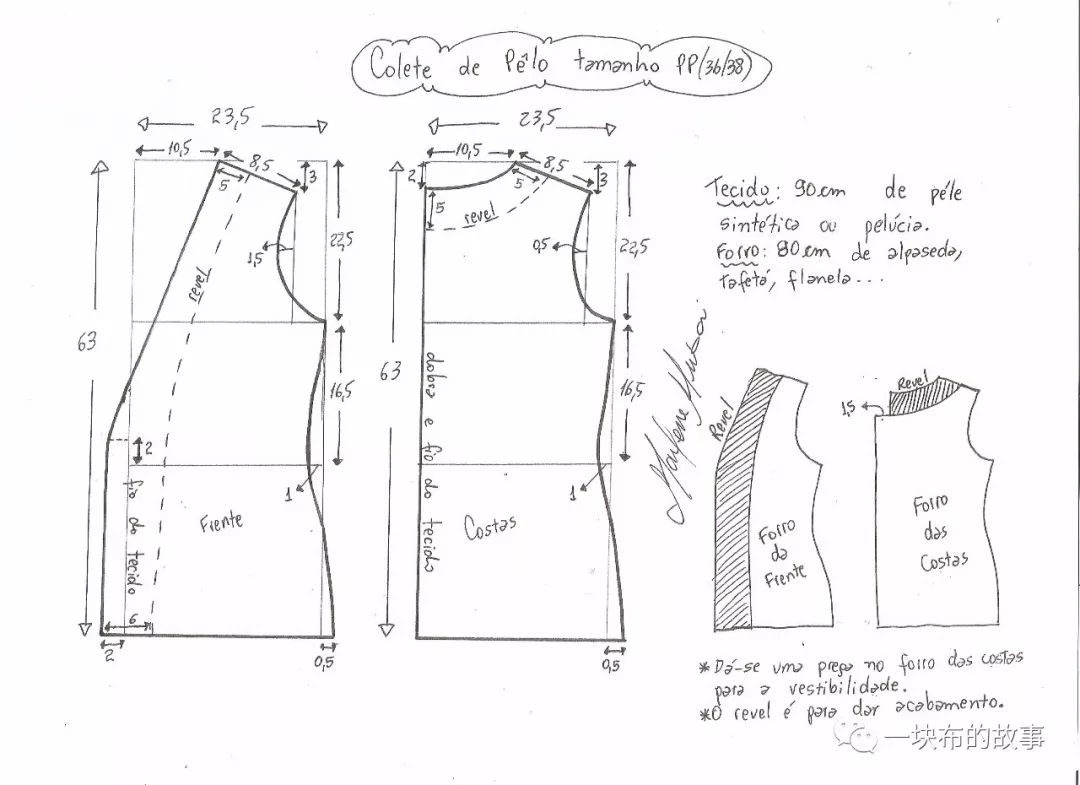 Colete de Pêlo tamanho PP(36/38)
23,5
10,5
8,5
3
5
22,5
1,5
revel
63
16,5
2
1
fio do tecido
Frente
6
2
0,5
23,5
10,5
8,5
2
3
5
5
revel
0,5
22,5
63
16,5
dobra e fio do tecido
1
Costas
0,5
Tecido: 90cm de péle
sintética ou pelúcia.
Forro: 80cm de alpaseda,
tafetá, flanela...
Revel
Forro
da
Frente
Revel
1,5
Forro
das
Costas
*Dá-se uma prega no forro das costas
para a vestibilidade.
*O revel é para dar acabamento.
一块布的故事